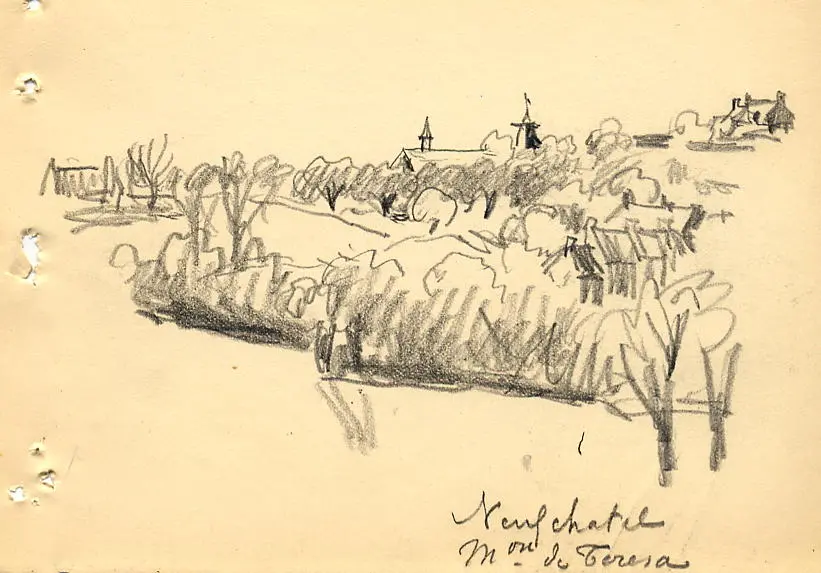 Neufchatel
Mon de Teresa